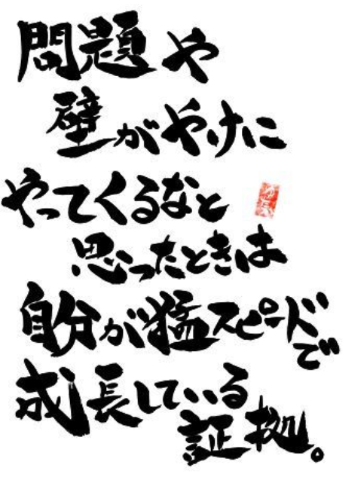 問題や
壁がやけに
やってくるなと
思ったときは
自分が猛スピードで
成長している
証拠。